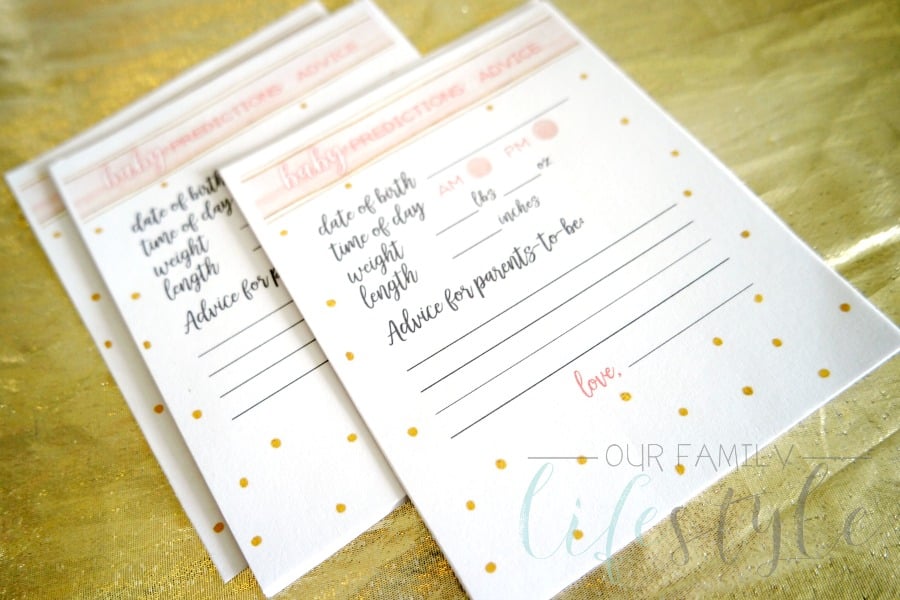 baby PREDICTIONS ADVICE
date of birth
time of day AM PM
weight lbs oz
length inches
Advice for parents-to-be:
love,
baby PREDICTIONS ADVICE
date of birth
time of day
weight
length
Advice for p
OUR FAMILY
lifestyle